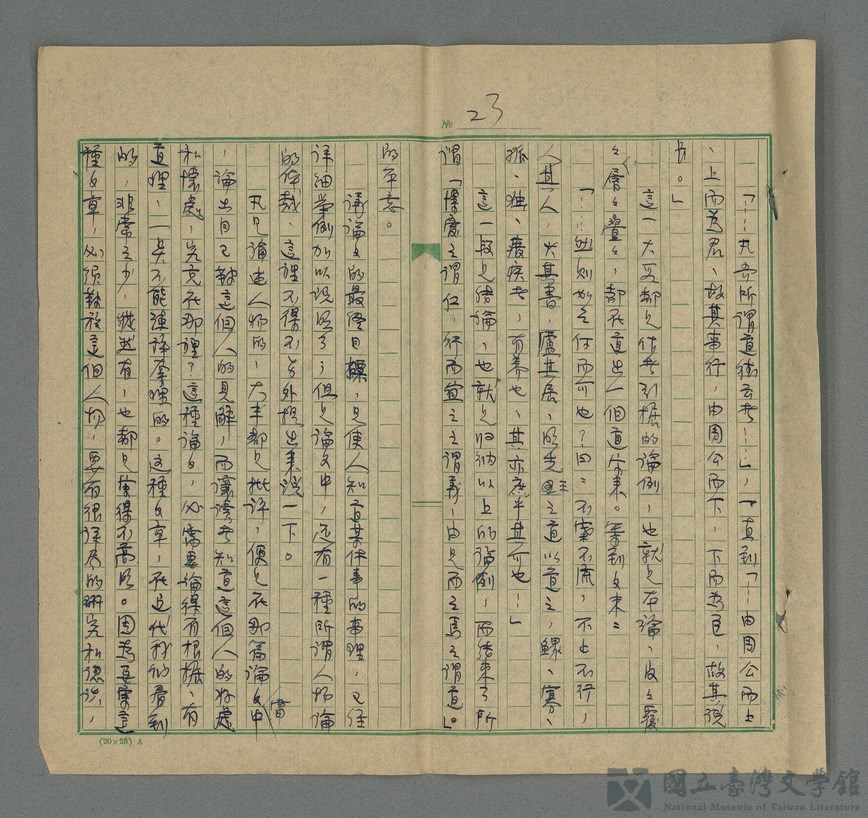 № 23
「……凡吾所謂道德云者……」,一直到「……由周公而上
、上而為君、故其事行,由周公而下,下而為臣,故其說
長。」
這一大段都是作者引据的論例,也就是本論、反々覆
々,層々疊々,都在道出一個道字來。等到文末:
「……然則如之何而可也?曰:不塞不流,不止不行,
人其人,火其書,廬其居,明先王之道以道之,鰥、寡、
孤、独、癈疾者,有養也、其亦庶乎其可也……」
這一段是結論,也就是归納以上的論例,而結束了所
謂「博愛之謂仁,行而宜之之謂義,由是而之焉之謂道」。
的本意。
議論文的最終目標,是使人知道某件事的事理,已経
詳細举例加以說明了;但是論文中,还有一種所謂人物論
的体裁、這裡不得不另外提出來說一下。
凡是論述人物的,大半都是批評,便是在那篇論文中
當
,論出自己對這個人的見解,而讓讀者知道這個人的好處
和懷處,究竟在那裡?這種論文,必需要論得有根据、有
道理,一点不能強詞奪理的。这種文章,在近代我們看到
的,非常之少,縱然有,也都是做得不高明。因為要寫這
種文章,必須對於這個人物,要有很詳尽的研究和認識,
(20×25) A
國立臺灣文學館
National Museum of Taiwan Literature